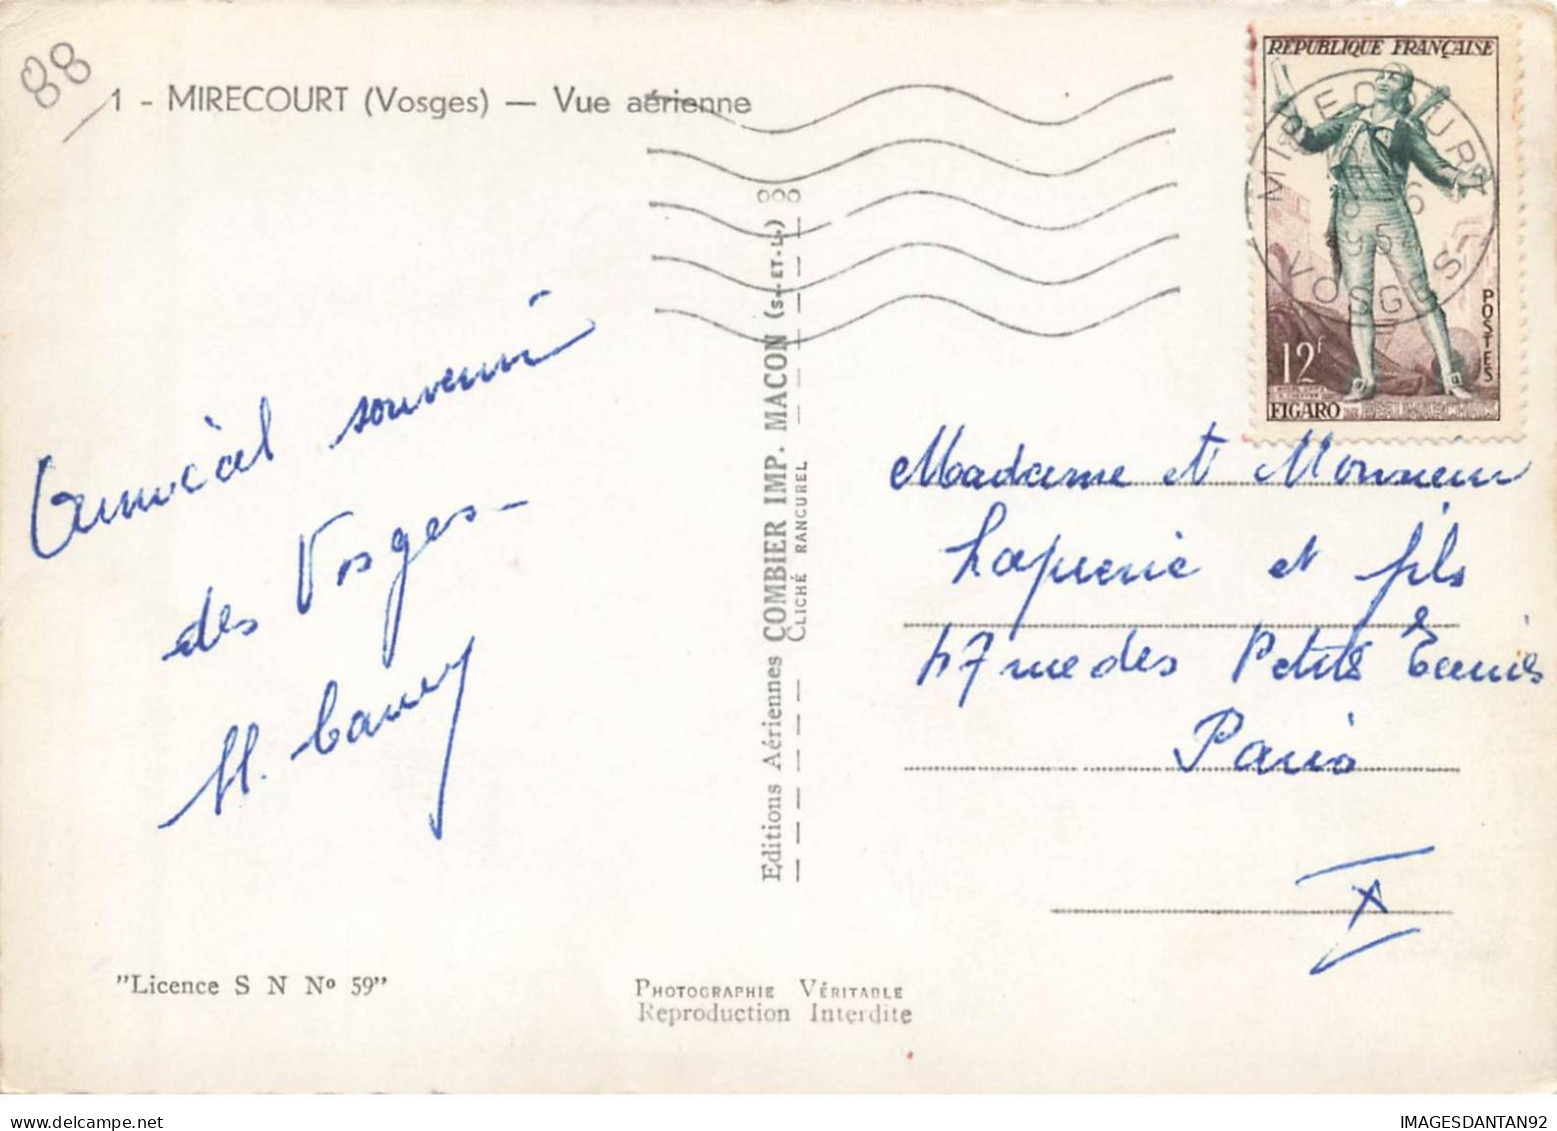 88
1 - MIRECOURT (Vosges) — Vue aérienne
Amical souvenir
des Vosges -
"Licence S N Nº 59"
Editions Aériennes COMBIER IMP. MACON (S.-ET-L.)
CLICHÉ RANCUREL
PHOTOGRAPHIE VÉRITABLE
Reproduction Interdite
RÉPUBLIQUE FRANÇAISE
MIRECOURT
VOSGES
POSTES
12F
FIGARO DE BEAUMARCHAIS
Madame et Monsieur
et fils
47 rue des Petites Écuries
Paris
X
IMAGESDANTAN92